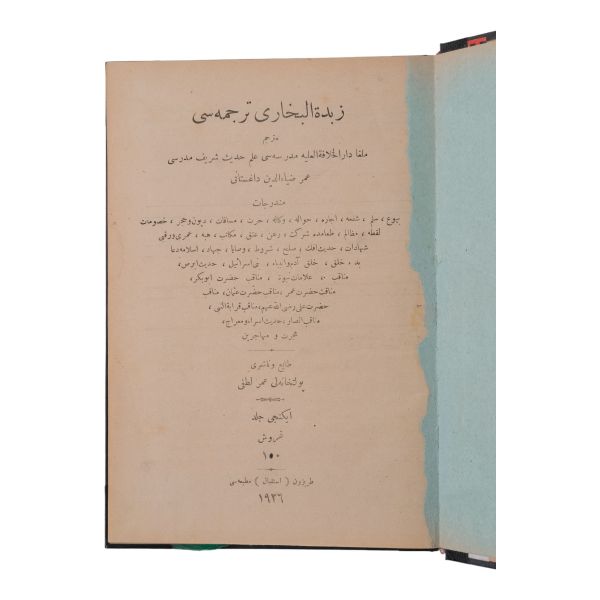 زبدة البخاری ترجمه سی
مترجم
ملغا دار الخلافة العلیه مدرسه سی علم حدیث شریف مدرسی
عمر ضیاءالدین داغستانی
مندرجات
بیوع ، سلم ، شفعه ، اجاره ، حواله ، وکاله ، حرث ، مساقات ، دیون وحجر ، خصومات
لقطه ، مظالم ، طعامده شرکت ، رهن ، عتق ، مکاتب ، هبه ، عمری ورقبی
شهادات ، حدیث افك ، صلح ، شروط ، وصایا ، جهاد ، اسلامه دعا
بدء خلق ، خلق آدم وانبیاء ، بنی اسرائیل ، حدیث ابرص ،
مناقب ، علامات نبوة ، مناقب حضرت ابوبکر ،
مناقب حضرت عمر ، مناقب حضرت عثمان ، مناقب
حضرت علی رضی الله عنهم ، مناقب قرابة النبی ،
مناقب انصار ، حدیث اسراء ومعراج ،
هجرت و مهاجرین
طابع وناشری
عمر لطفی
ایکنجی جلد
غروش
۱۵۰
طربزون ( استقبال ) مطبعه سی
۱۹۲۶